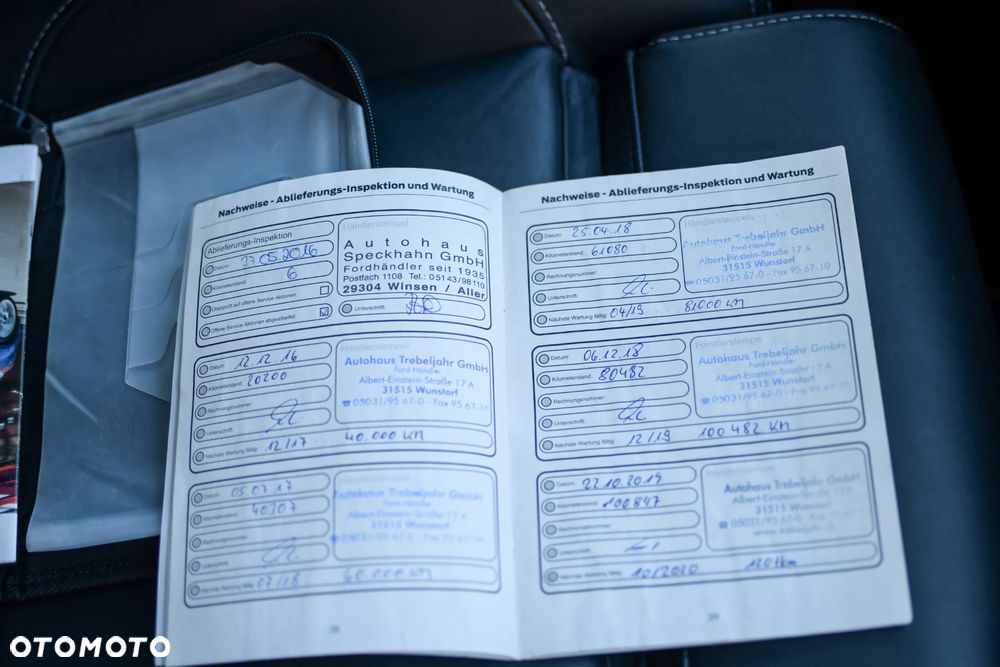 Nachweise - Ablieferungs-Inspektion und Wartung
Ablieferungs-Inspektion
Datum: 27.05.2016
Kilometerstand: 6
Überprüft auf offene Service Aktionen:
Offene Service Aktionen abgearbeitet:
Händlerstempel
Autohaus
Speckhahn GmbH
Fordhändler seit 1935
Postfach 1108 Tel.: 05143/98110
29304 Winsen / Aller
Unterschrift:
Datum: 12.12.16
Kilometerstand: 20200
Rechnungsnummer:
Unterschrift:
Nächste Wartung fällig: 12/17 40.000 KM
Händlerstempel
Autohaus Trebeljahr GmbH
Ford-Händler
Albert-Einstein-Straße 17 A
31515 Wunstorf
☎ 05031/95 67-0 - Fax 95 67-10
Datum: 05.07.17
Kilometerstand: 40307
Rechnungsnummer:
Unterschrift:
Nächste Wartung fällig: 07/18 60.000 KM
Händlerstempel
Autohaus Trebeljahr GmbH
Ford-Händler
Albert-Einstein-Straße 17 A
31515 Wunstorf
05031/95 67-0 - Fax 95 67-10
28
Nachweise - Ablieferungs-Inspektion und Wartung
Datum: 25.04.18
Kilometerstand: 61080
Rechnungsnummer:
Unterschrift:
Nächste Wartung fällig: 04/19 81000 KM
Händlerstempel
Autohaus Trebeljahr GmbH
Ford-Händler
Albert-Einstein-Straße 17 A
31515 Wunstorf
☎ 05031/95 67-0 - Fax 95 67-10
Datum: 06.12.18
Kilometerstand: 80482
Rechnungsnummer:
Unterschrift:
Nächste Wartung fällig: 12/19 100482 KM
Händlerstempel
Autohaus Trebeljahr GmbH
Ford-Händler
Albert-Einstein-Straße 17 A
31515 Wunstorf
☎ 05031/95 67-0 - Fax 95 67-10
Datum: 22.10.2019
Kilometerstand: 100847
Rechnungsnummer:
Unterschrift:
Nächste Wartung fällig: 10/2020 120tkm
Händlerstempel
Autohaus Trebeljahr GmbH
Albert-Einstein-Straße 17 A
31515 Wunstorf
☎ 05031/95 67-0 - Fax 95 67-10
29
OTOMOTO